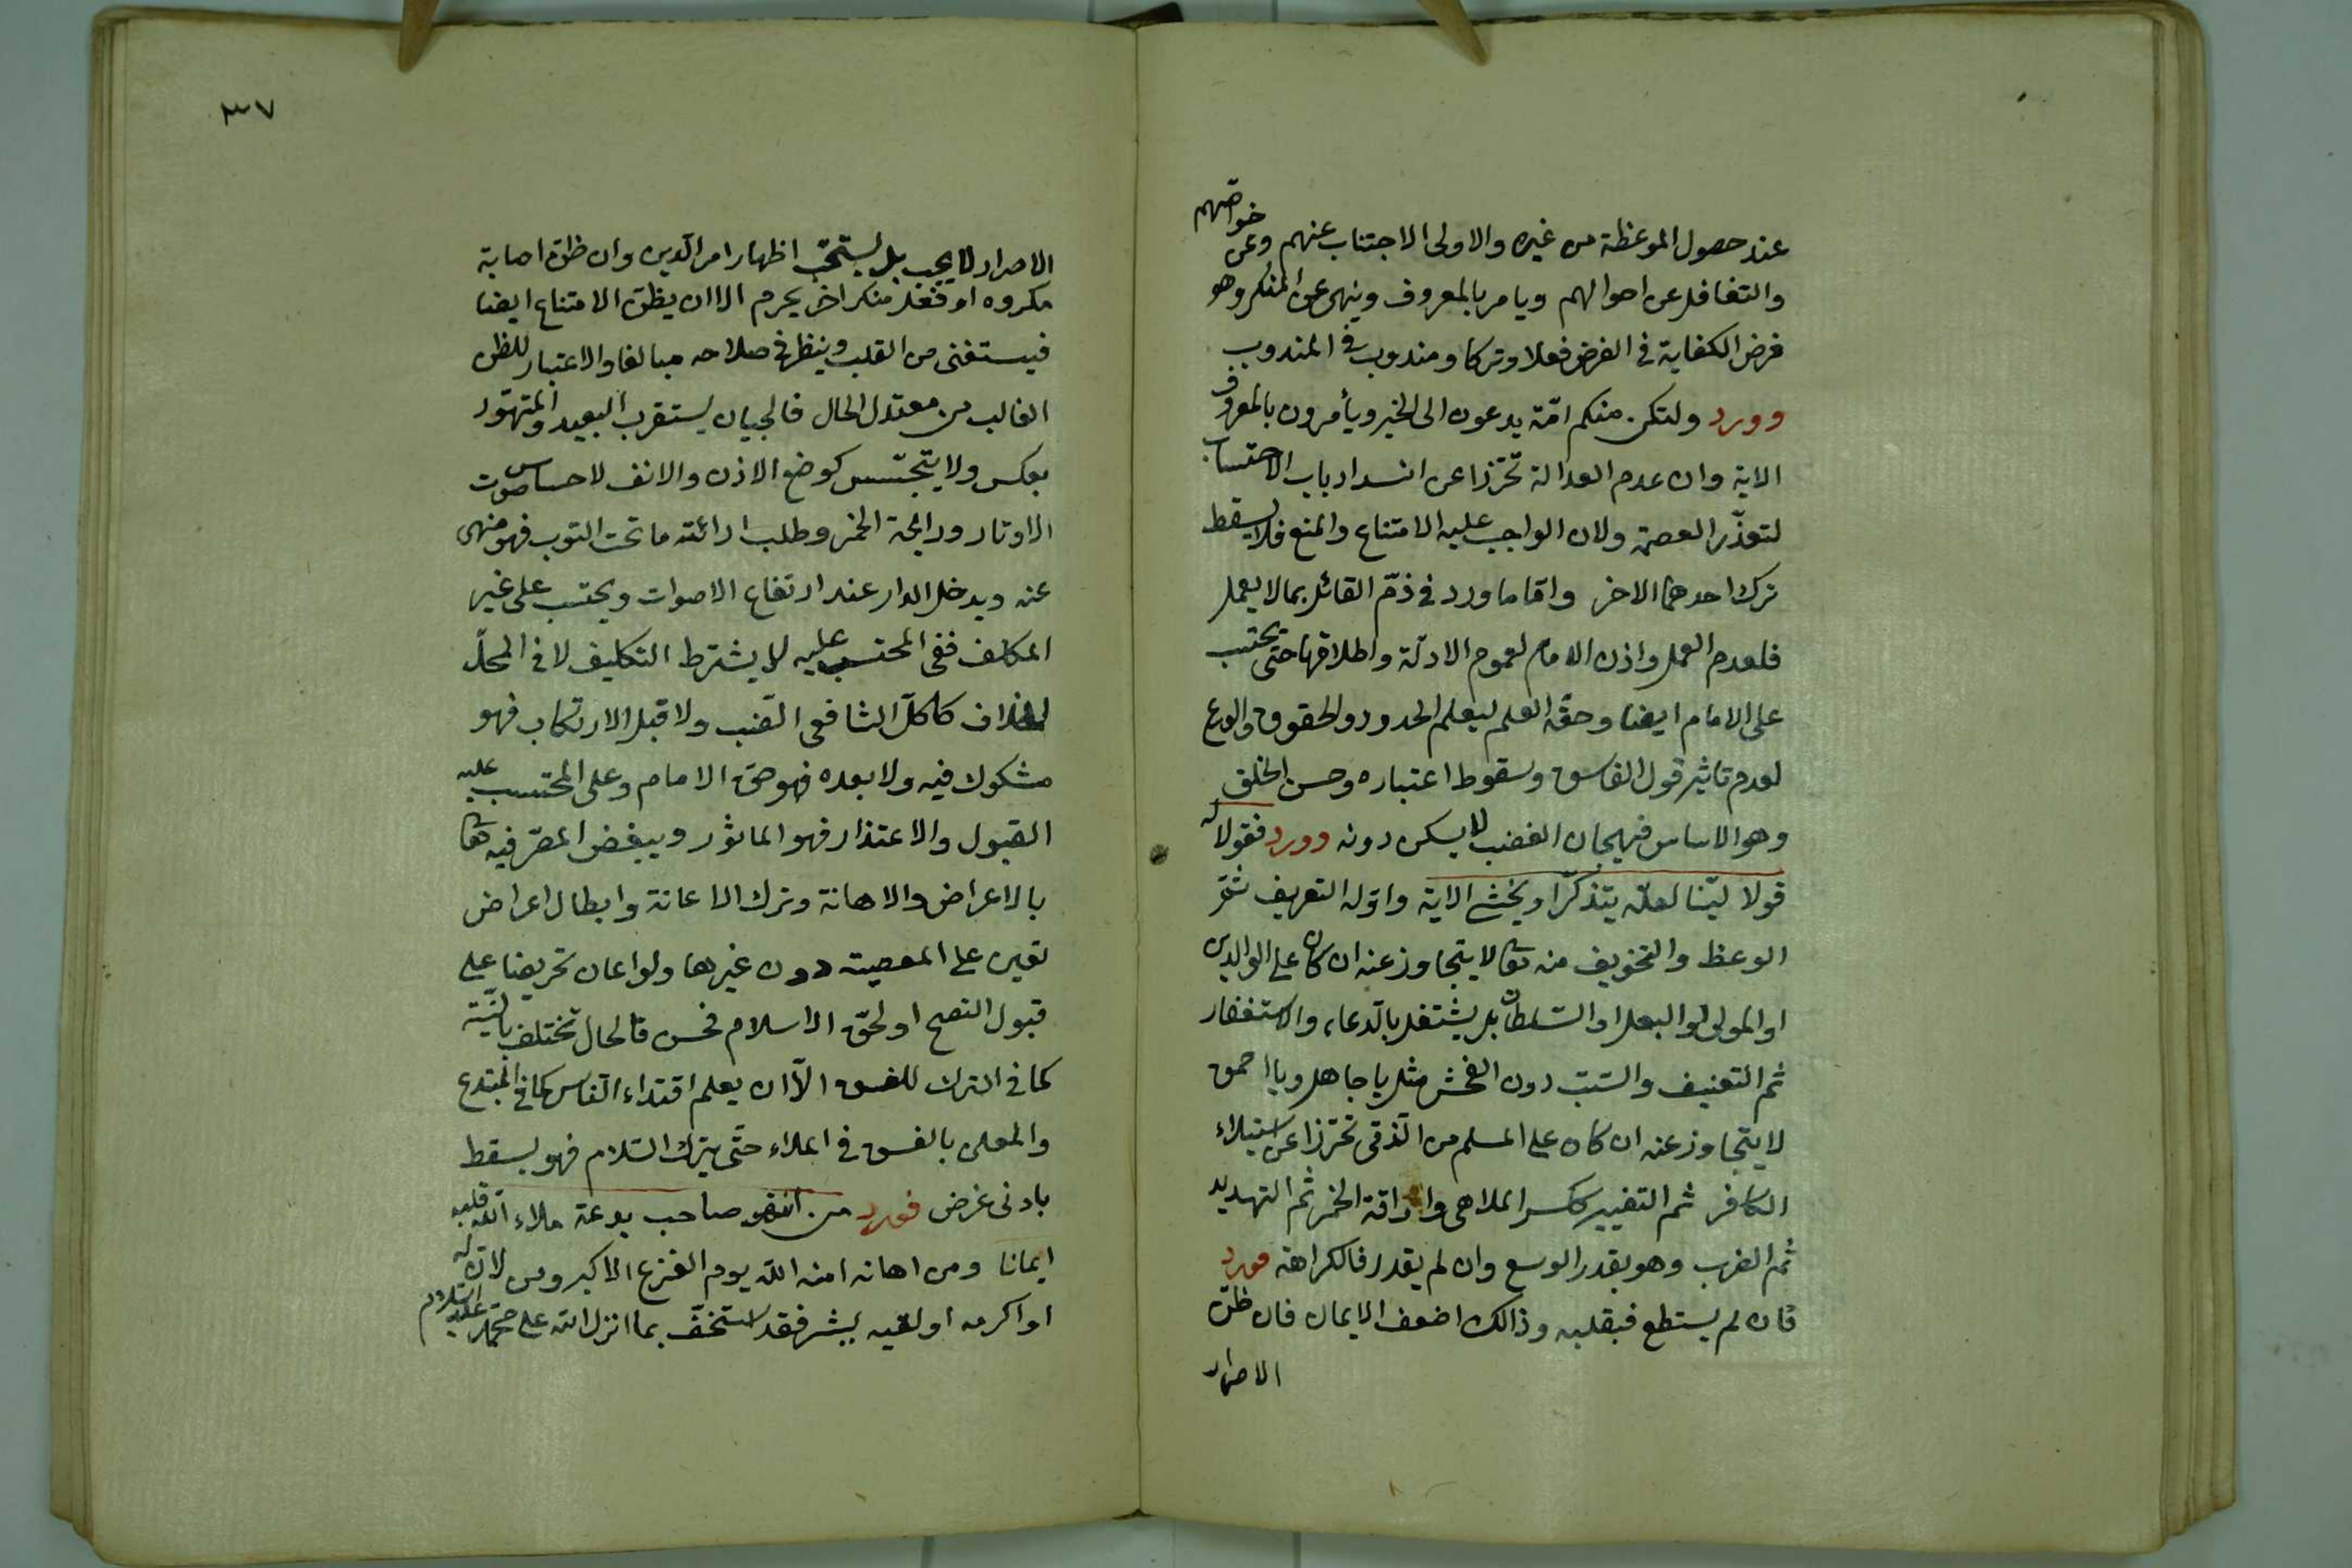 عند حصول الموعظة من غيره والاولى الاجتناب عنهم وعن خواصّهم
والتغافل عن احوالهم ويامر بالمعروف وينهى عن المنكر وهو
فرض الكفاية فى الفرض فعلا وتركا ومندوب فى المندوب
وورد ولتكن منكم امّة يدعون الى الخير ويأمرون بالمعروف
الاية وان عدم العدالة تحرّزا عن انسداد باب الاحتساب
لتعذّر العصمة ولان الواجب عليه الامتناع والمنع فلا يسقط
ترك احدهما الاخر وامّا ما ورد فى ذمّ القائل بما لا يعمل
فلعدم العمل واذن الامام لعموم الادلّة واطلاقها حتّى يحتسب
على الامام ايضا وحقّه العلم ليعلم الحدود والحقوق والورع
لعدم تاثير قول الفاسق وسقوط اعتباره وحسن الخلق
وهو الاساس فهيجان الغضب لا يسكن دونه وورد فقولا له
قولا ليّنا لعلّه يتذكّر او يخشى الاية واوّله التعريف ثمّ
الوعظ والتخويف منه تعالى لا يتجاوز عنه ان كان على الوالدين
او المولى او البعل او السّلطان بل يشتغل بالدّعاء والاستغفار
ثم التعنيف والسّبّ دون الفحش مثل يا جاهل ويا احمق
لا يتجاوز عنه ان كان على المسلم من الذّمّى تحرّزا عن استيلاء
الكافر ثم التغيير ككسر الملاهى واراقة الخمر ثم التهديد
ثم الضرب وهو بقدر الوسع وان لم يقدر فالكراهة فورد
فان لم يستطع فبقلبه وذالك اضعف الايمان فان ظنّ
الاصرار
٣٧
الاصرار لا يجب بل يستحبّ اظهار امر الدّين وان ظنّ اصابة
مكروه او فعل منكر اخر يحرم الا ان يظنّ الامتناع ايضا
فيستفتى من القلب وينظر فى صلاحه مبالغا والاعتبار للظن
الغالب من معتدل الحال فالجبان يستقرب البعيد والمتهوّر
بعكس ولا يتجسّس كوضع الاذن والانف لاحساس صوت
الاوتار ورايحة الخمر وطلب ارائته ما تحت الثوب فهو منهى
عنه ويدخل الدار عند ارتفاع الاصوات ويحتسب على غير
المكلف ففى المحتسب عليه لا يشترط التكليف لا فى المحلّ
الخلاف كاكل الشافعى الضّب ولا قبل الارتكاب فهو
مشكوك فيه ولا بعده فهو حقّ الامام وعلى المحتسب عليه
القبول والاعتذار فهو الماثور ويبغض المصرّ فيه تعالى
بالاعراض والاهانة وترك الاعانة وابطال اعراض
تعين على المعصية دون غيرها ولو اعان تحريضا على
قبول النصح او لحقّ الاسلام فحسن فالحال تختلف بالنّيّة
كما فى الترك للفسق الّا ان يعلم اقتداء النّاس كما فى المبتدع
والمعلن بالفسق فى الملاء حتّى يترك السّلام فهو يسقط
بادنى غرض فورد من انتهر صاحب بدعة ملاء الله قلبه
ايمانا ومن اهانه امنه الله يوم الفزع الاكبر ومن لان له
او اكرمه او لقيه ببشر فقد استخفّ بما انزل الله على محمّد عليه السّلام